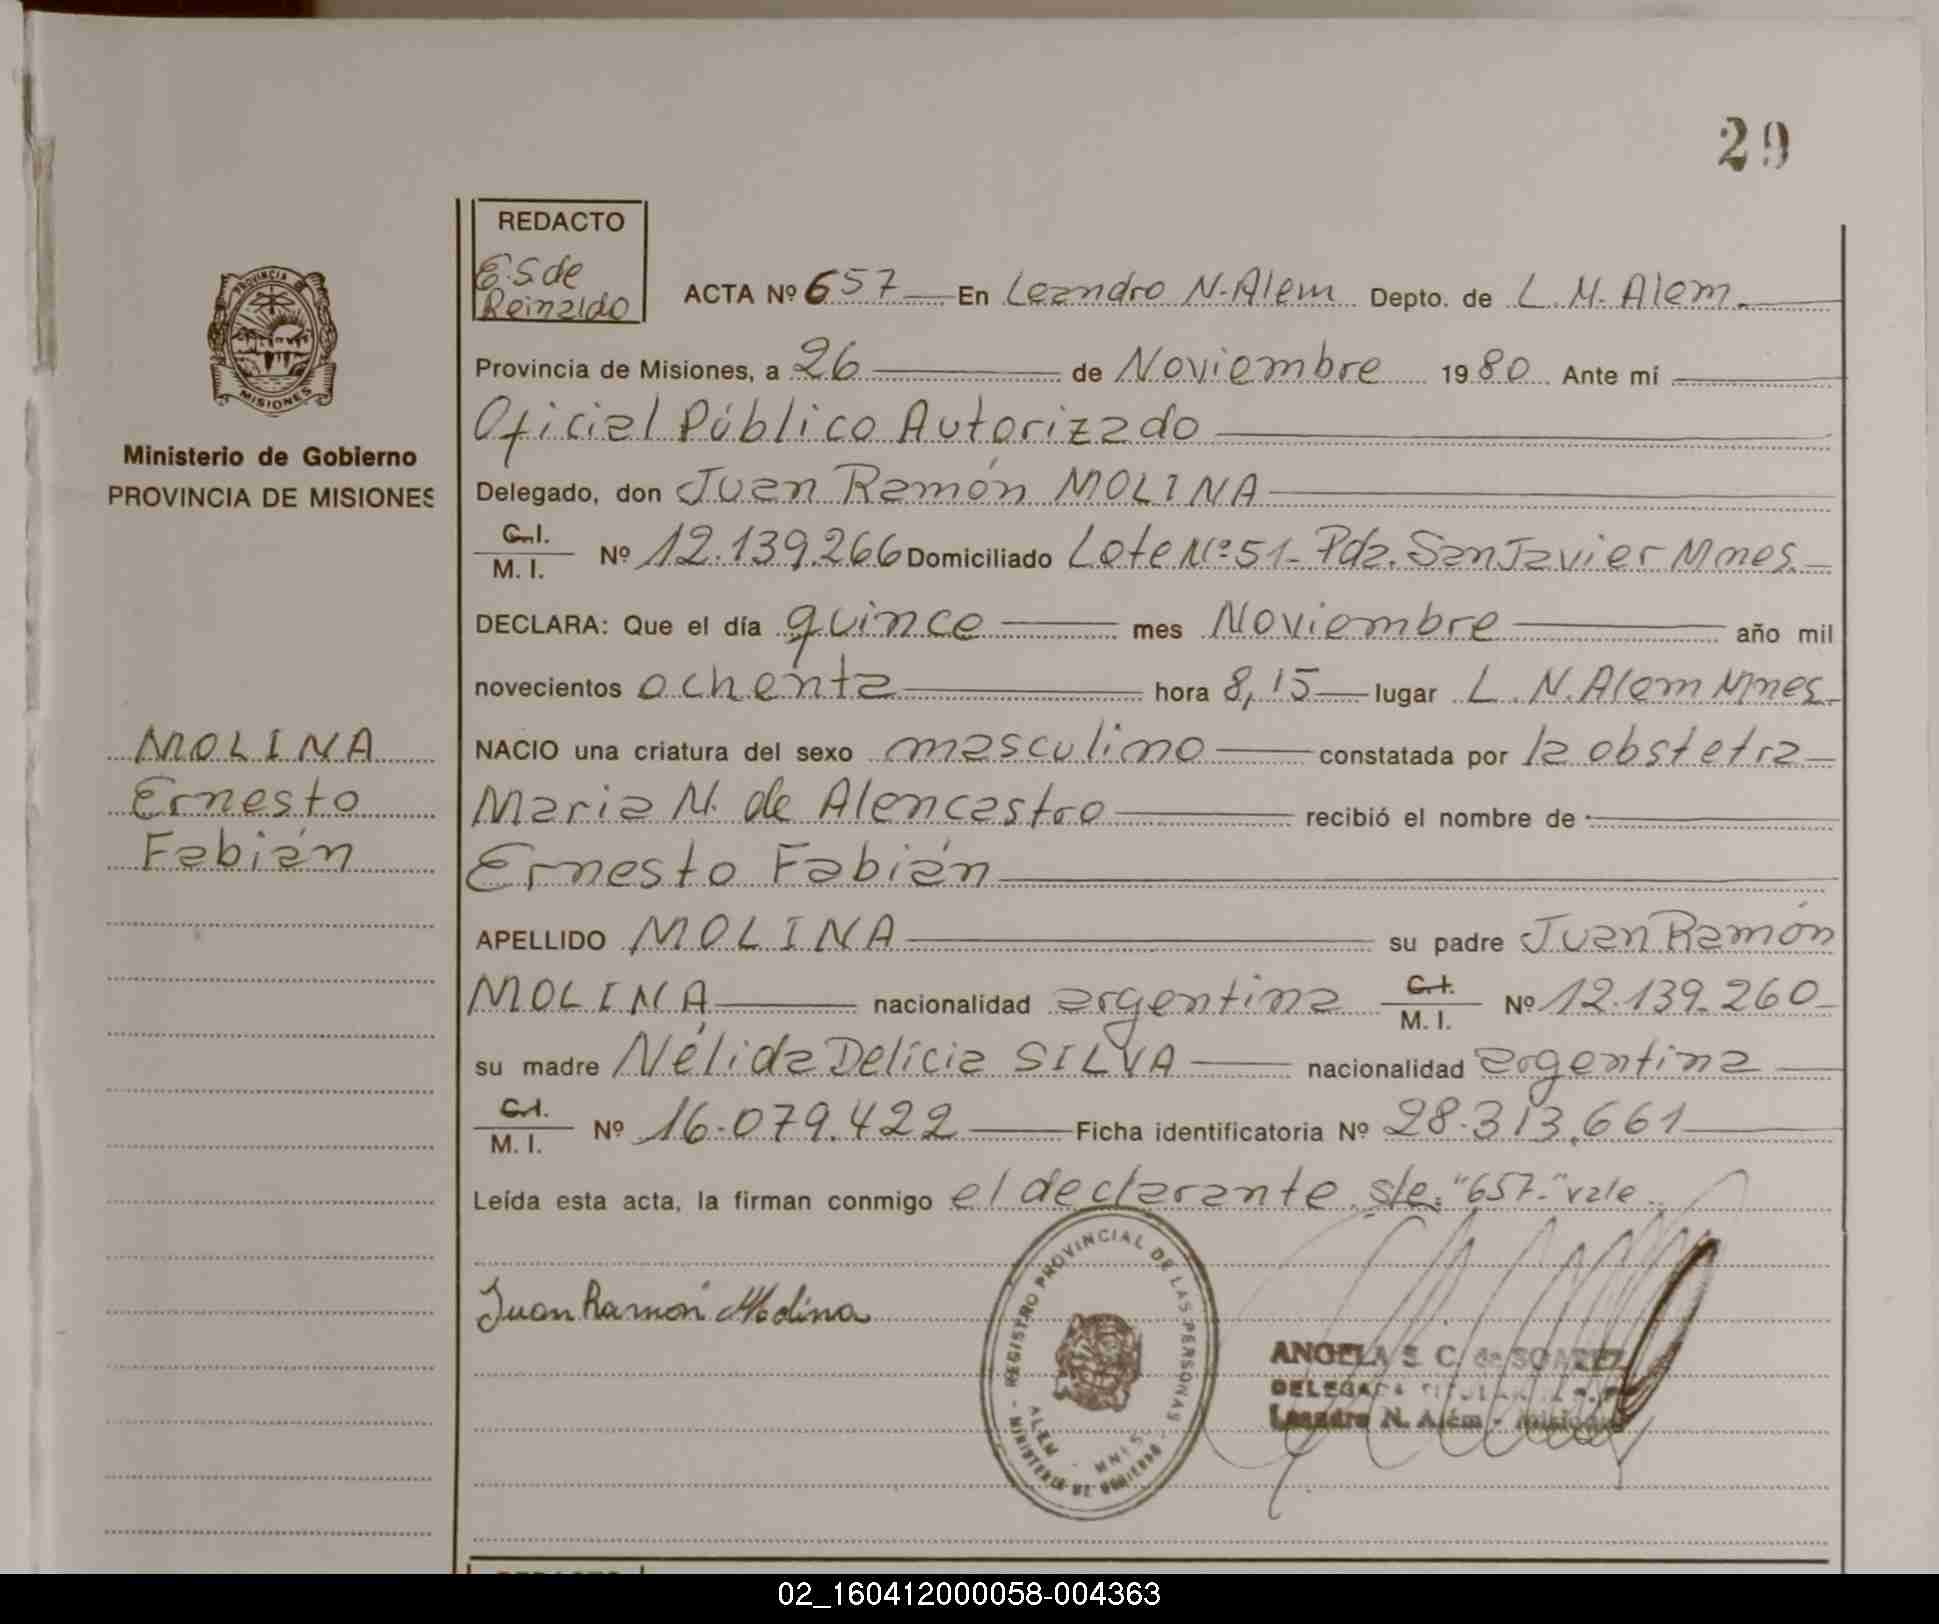 29
REDACTO
E.S de
Reinaldo
ACTA Nº 657 En Leandro N. Alem Depto. de L. N. Alem.
PROVINCIA DE
MISIONES
Ministerio de Gobierno
PROVINCIA DE MISIONES
Provincia de Misiones, a 26 de Noviembre 1980 Ante mí
Oficial Público Autorizado
Delegado, don Juan Ramón MOLINA
C.I.
M. I. Nº 12.139.266 Domiciliado Lote Nº 51- Pda. San Javier Mnes.
DECLARA: Que el día quince mes Noviembre año mil
novecientos ochenta hora 8,15 lugar L. N. Alem Mnes.
MOLINA
Ernesto
Fabián
NACIO una criatura del sexo masculino constatada por la obstetra
Maria N. de Alencastro recibió el nombre de
Ernesto Fabián
APELLIDO MOLINA su padre Juan Ramón
MOLINA nacionalidad argentina C.I. M. I. Nº 12.139.260
su madre Nélida Delícia SILVA nacionalidad argentina
C.I.
M. I. Nº 16.079.422 Ficha identificatoria Nº 28.313.661
Leída esta acta, la firman conmigo el declarante. s/e: "657." vale.
Juan Ramón Molina
REGISTRO PROVINCIAL DE LAS PERSONAS
ALEM - MNES.
MINISTERIO DE GOBIERNO
ANGELA S. C. de SOAREZ
DELEGADA TITULAR
Leandro N. Além - Misiones
02_160412000058-004363